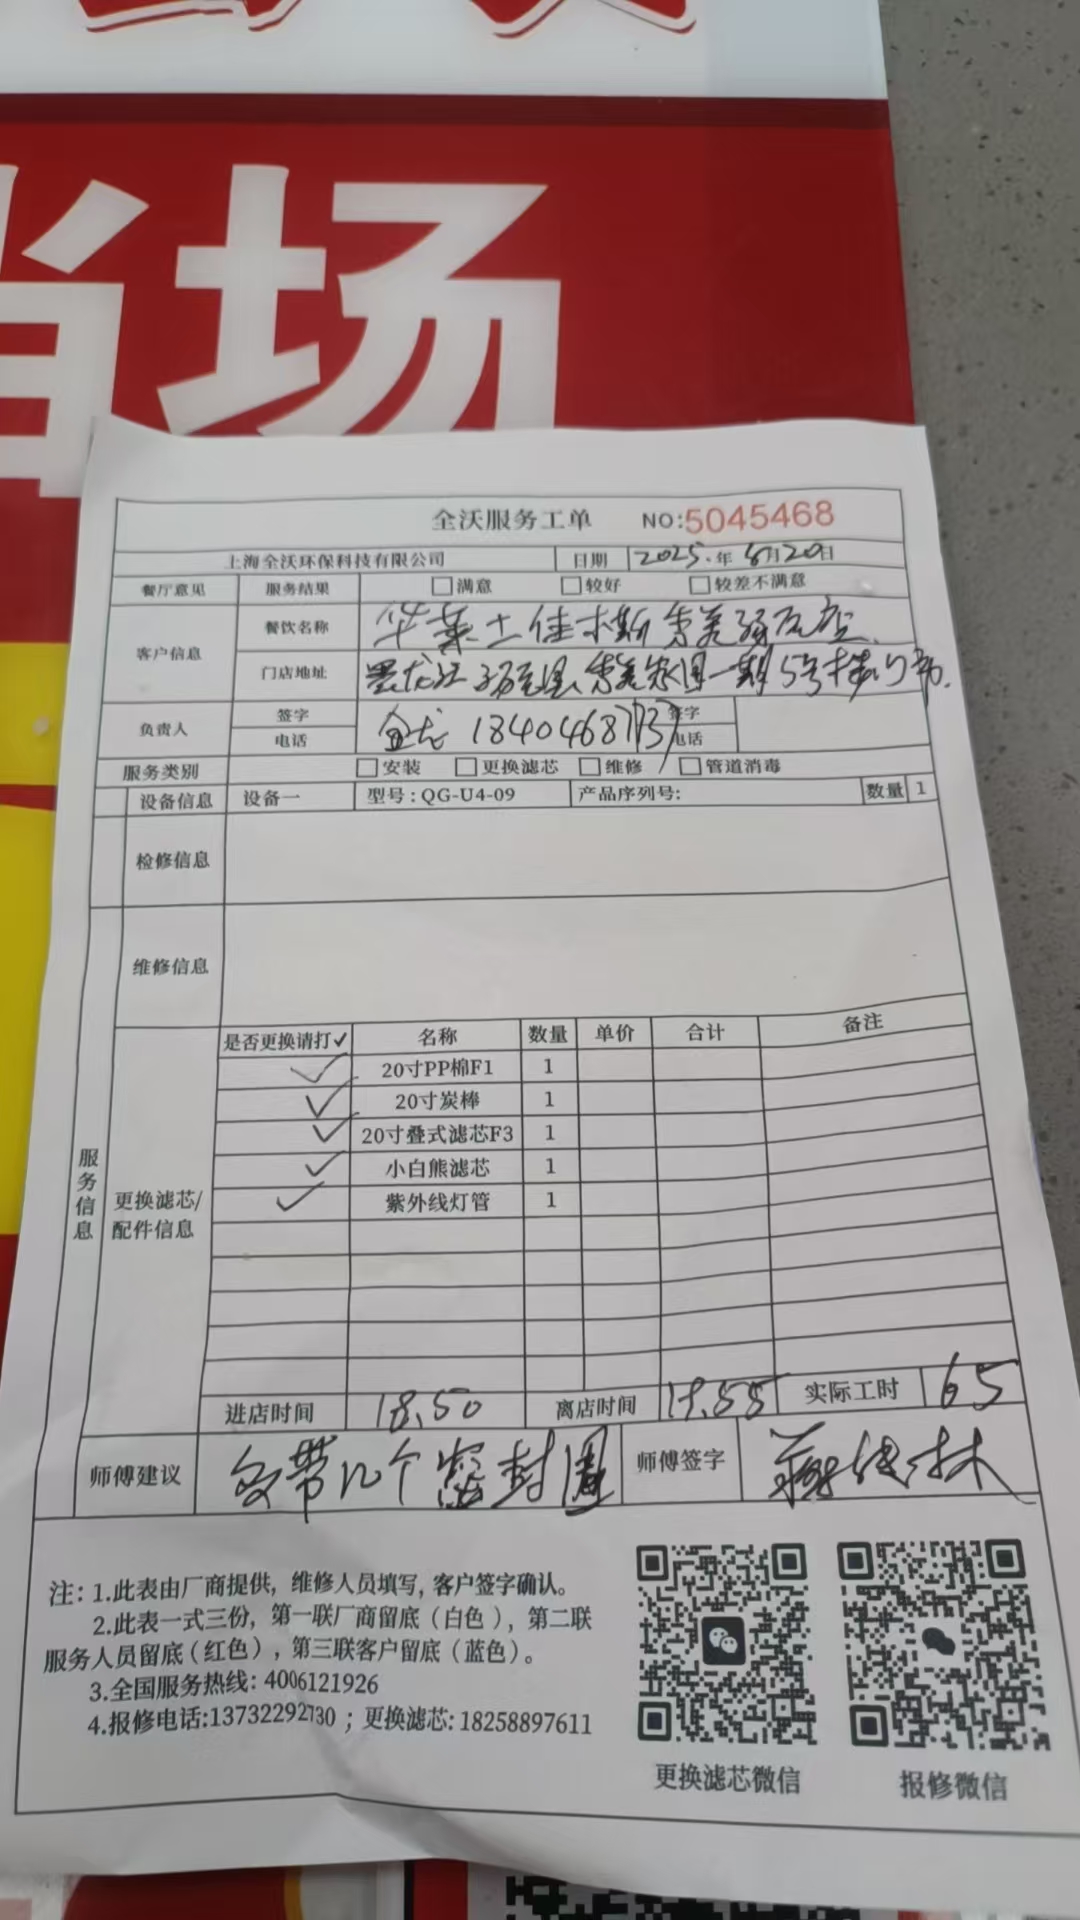 当场
全沃服务工单 NO:5045468
上海全沃环保科技有限公司 日期 2025.年 8月20日
餐厅意见 服务结果 □满意 □较好 □较差不满意
客户信息 餐饮名称 华莱士佳木斯
门店地址 黑龙江 一期5号楼门市.
负责人 签字 金龙 18404687137 签字
电话 电话
服务类别 □安装 □更换滤芯 □维修 □管道消毒
设备信息 设备一 型号:QG-U4-09 产品序列号: 数量 1
检修信息
维修信息
是否更换请打✓ 名称 数量 单价 合计 备注
✓ 20寸PP棉F1 1
✓ 20寸炭棒 1
✓ 20寸叠式滤芯F3 1
✓ 小白熊滤芯 1
✓ 紫外线灯管 1
服务信息
更换滤芯/
配件信息
进店时间 18.50 离店时间 19.55 实际工时 65
师傅建议 多带几个密封圈 师傅签字
注: 1.此表由厂商提供, 维修人员填写, 客户签字确认。
2.此表一式三份, 第一联厂商留底(白色), 第二联
服务人员留底(红色), 第三联客户留底(蓝色)。
3.全国服务热线: 4006121926
4.报修电话:13732292730 ; 更换滤芯: 18258897611
更换滤芯微信 报修微信